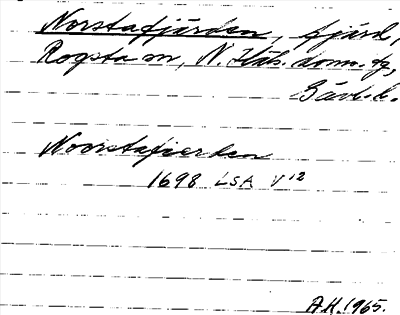 Norstafjärden, fjärd,
Rogsta sn, N. Häls. doms.,
Gävl. l.
Noorstafierden
1698 LSA V¹²
A.H. 1965.